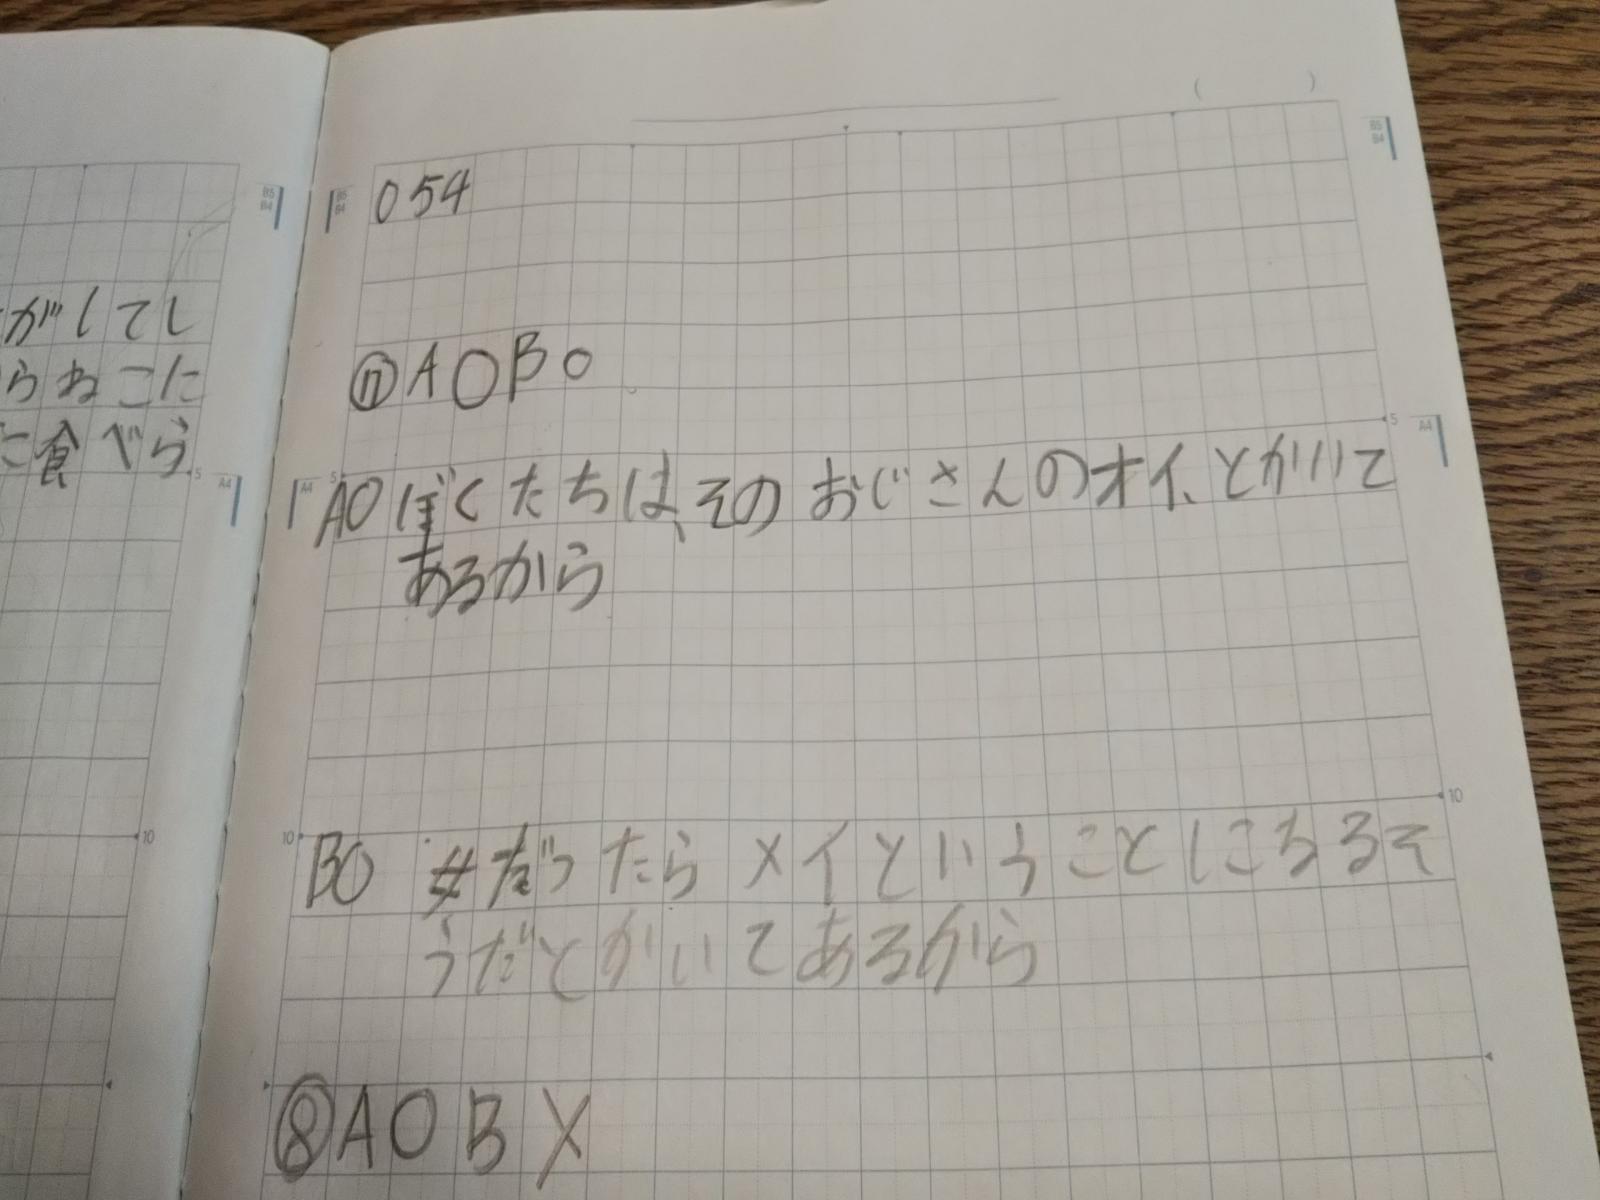 がしてし
らねこに
に食べら
054
⑰AOBo
AOぼくたちは、そのおじさんのオイ、とかいて
あるから
BO 女だったらメイということにになるそ
うだとかいてあるから
⑧AOBX